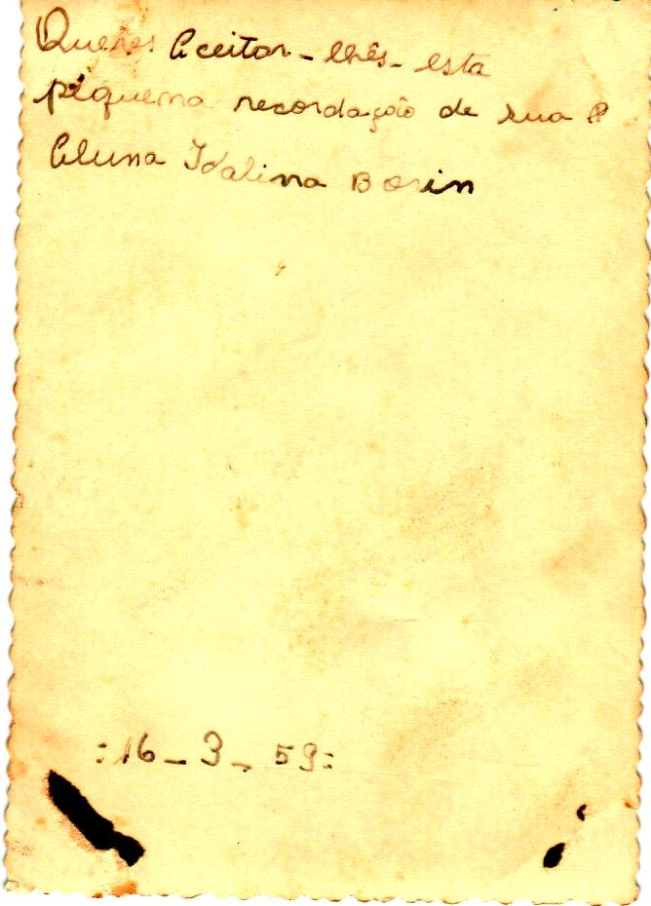 Queres Aceitar-lhês-esta
pequena recordação de sua
Aluna Idalina Borin
:16-3-59: